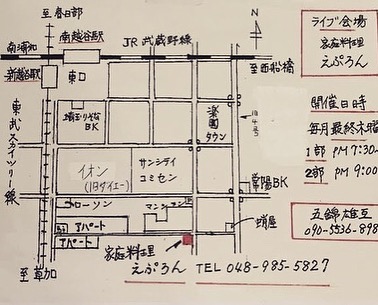 至春日部
N
南浦和
南越谷駅
JR 武蔵野線
至西船橋
新越谷駅
東口
埼玉りそな
BK
楽園
タウン
旧4号
東武スカイツリー線
イオン
(旧ダイエー)
サンシティ
コミセン
常陽BK
ローソン
マンション
アパート
アパート
蛸屋
至草加
家庭料理
えぷろん TEL 048-985-5827
ライブ会場
家庭料理
えぷろん
開催日時
毎月最終木曜
1部 PM 7:30~
2部 PM 9:00
五錦雄互
090-5536-898